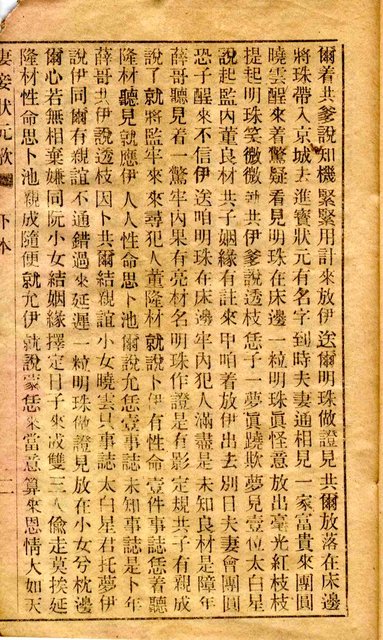 爾着共爹說知機緊緊用計來放伊送爾明珠做證見共爾放落在床邊
將珠帶入京城去進寶狀元有名字到時夫妻通相見一家富貴來團圓
曉雲醒來着驚疑看見明珠在床邊一粒明珠眞怪意放出毫光紅枝枝
提起明珠笑微微就共伊爹說透枝恁子一夢眞蹺欺夢見壹位太白星
說起監內董良材共子姻緣有註來甲咱着放伊出去別日夫妻會團圓
恐子醒來不信伊送咱明珠在床邊牢內犯人滿盡是未知良材是障年
薛哥聽見着一驚牢內果有亮材名明珠作證是有影定規共子有親成
說了就將監牢來來尋犯人董隆材就說卜伊有性命壹件事誌恁着聽
隆材聽見就應伊人人性命思卜池爾說允恁壹事誌未知事誌是卜年
薛哥共伊說透枝因卜共爾結親誼小女曉雲只事誌太白星君托夢伊
說伊同爾有親誼不通錯過來延遲一粒明珠做證見放在小女兮枕邊
爾心若無相棄嫌同阮小女結姻緣擇定日子來成雙三人偷走莫挨延
隆材性命思卜池親成隨便就允伊就說蒙恁來當意算來恩情大如天
妻妾狀元歌 下本 二